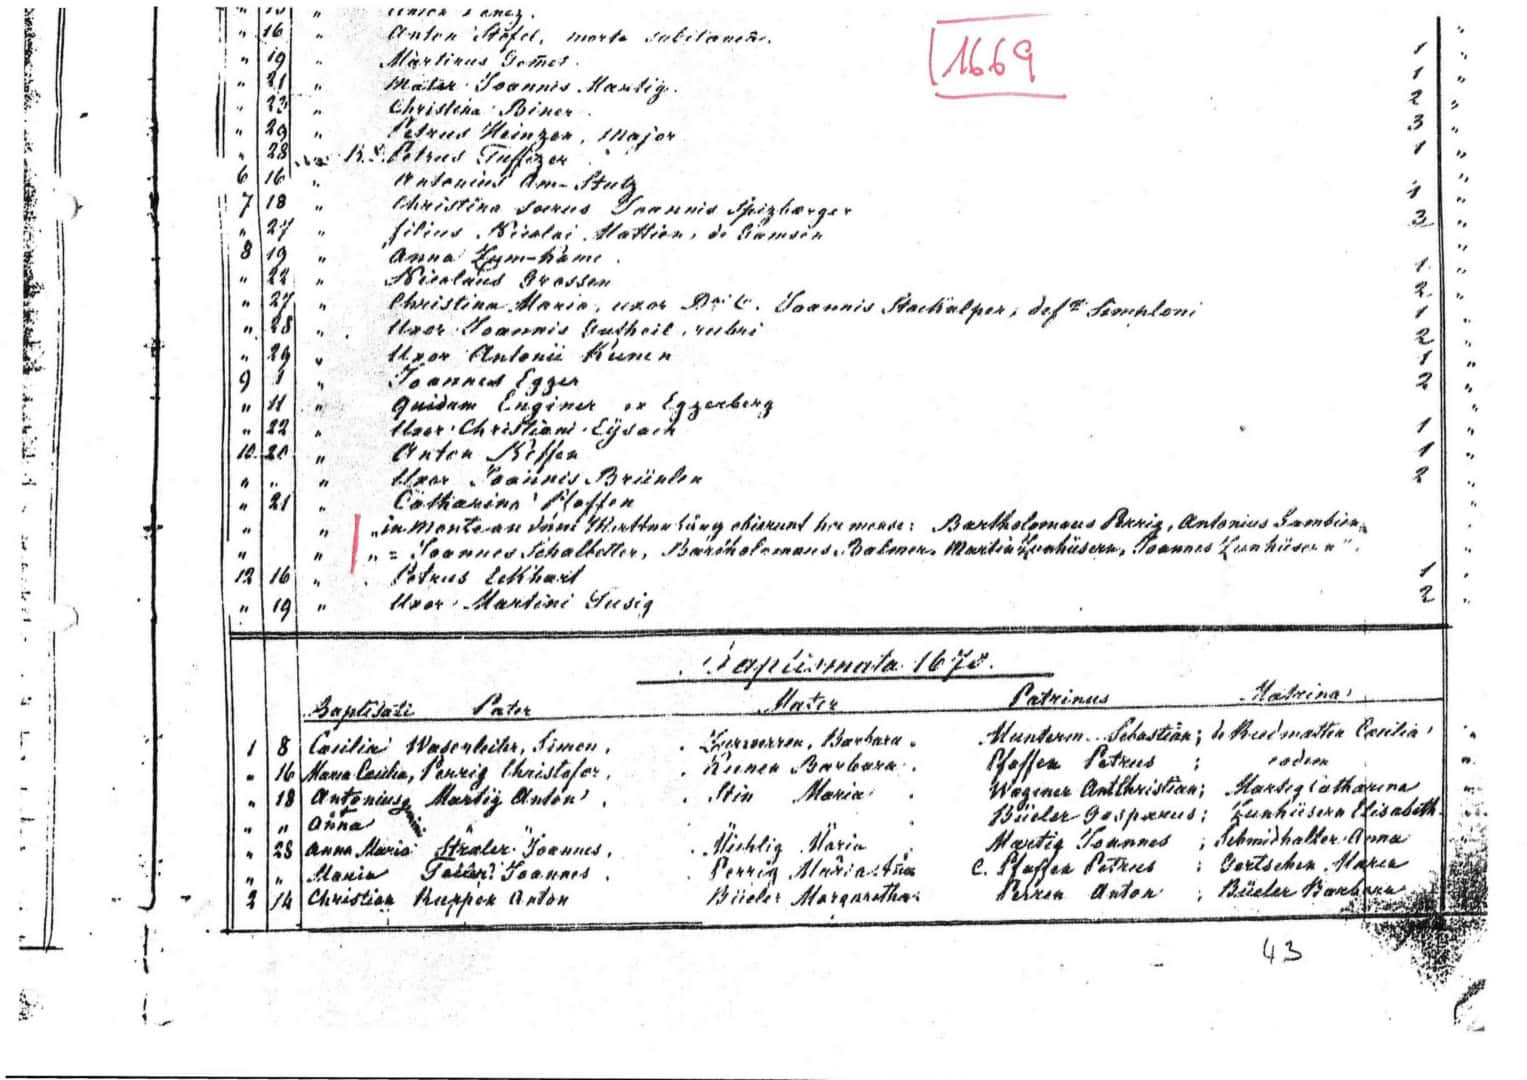 1669
" 16 " Anton Stofel, morte subitanea.
" 19 " Martinus Gomet. 1
" 21 " Mater Joannis Martig. 1
" 23 " Christina Biner. 2
" 29 " Petrus Heinzen, major 3
" 28 Petrus 1
6 16 " Antonius Am-Stutz
7 18 " Christina Joannis Spizbœrger 1
" 27 " filius Nicolai Mattien, de Gamsen 3
8 19 " Anna Zum-Kämi.
" 22 " Nicolaus Grossen 1
" 27 " Christina Maria, uxor Joannis Stockalper, Simploni 2
" 28 " Uxor Joannis Gutheil, rubri 1
" 29 " Uxor Antonii Kunen 2
9 1 " Joannes Egger 1
" 11 " quidam Enginer ex Eggerberg 2
" 22 " Uxor Christiani Eÿsach
10 20 " Anton Kiffen 1
" " " Uxor Joannis Brünlen 1
" 21 " Catharina Pfaffen 2
" in monte obierunt hoc mense: Bartholomäus Perrig, Antonius Lambien,
" " = Joannes Schalbetter, Bartholomaus Balmer, Martin Zenhüsern, Joannes Zenhüsern".
12 16 " Petrus Eckhart 1
" 19 " Uxor Martini Gusig 2
Baptismata 1670.
Baptisati Pater Mater Patrinus Matrina
1 8 Cæcilia Simon, Zurwerren, Barbara Sebastian; de Riedmatten Cæcilia
" 16 Maria Cæcilia, Perrig Christofor, Kunen Barbara Pfaffen Petrus ; eadem
" 18 Antonius Martig Anton, Stin Maria Wagener Christian; Martig Catharina
" " Anna Büeler Gasparus; Zenhüsern Elisabeth
" 28 Anna Maria Sträler Joannes, Michlig Maria Martig Joannes ; Schmidhalter Anna
" " Maria Joannes Perrig Maria C. Pfaffen Petrus ; Gertschen Maria
2 14 Christian Ruppen Anton Büeler Margaretha Perren Anton ; Büeler Barbara
43